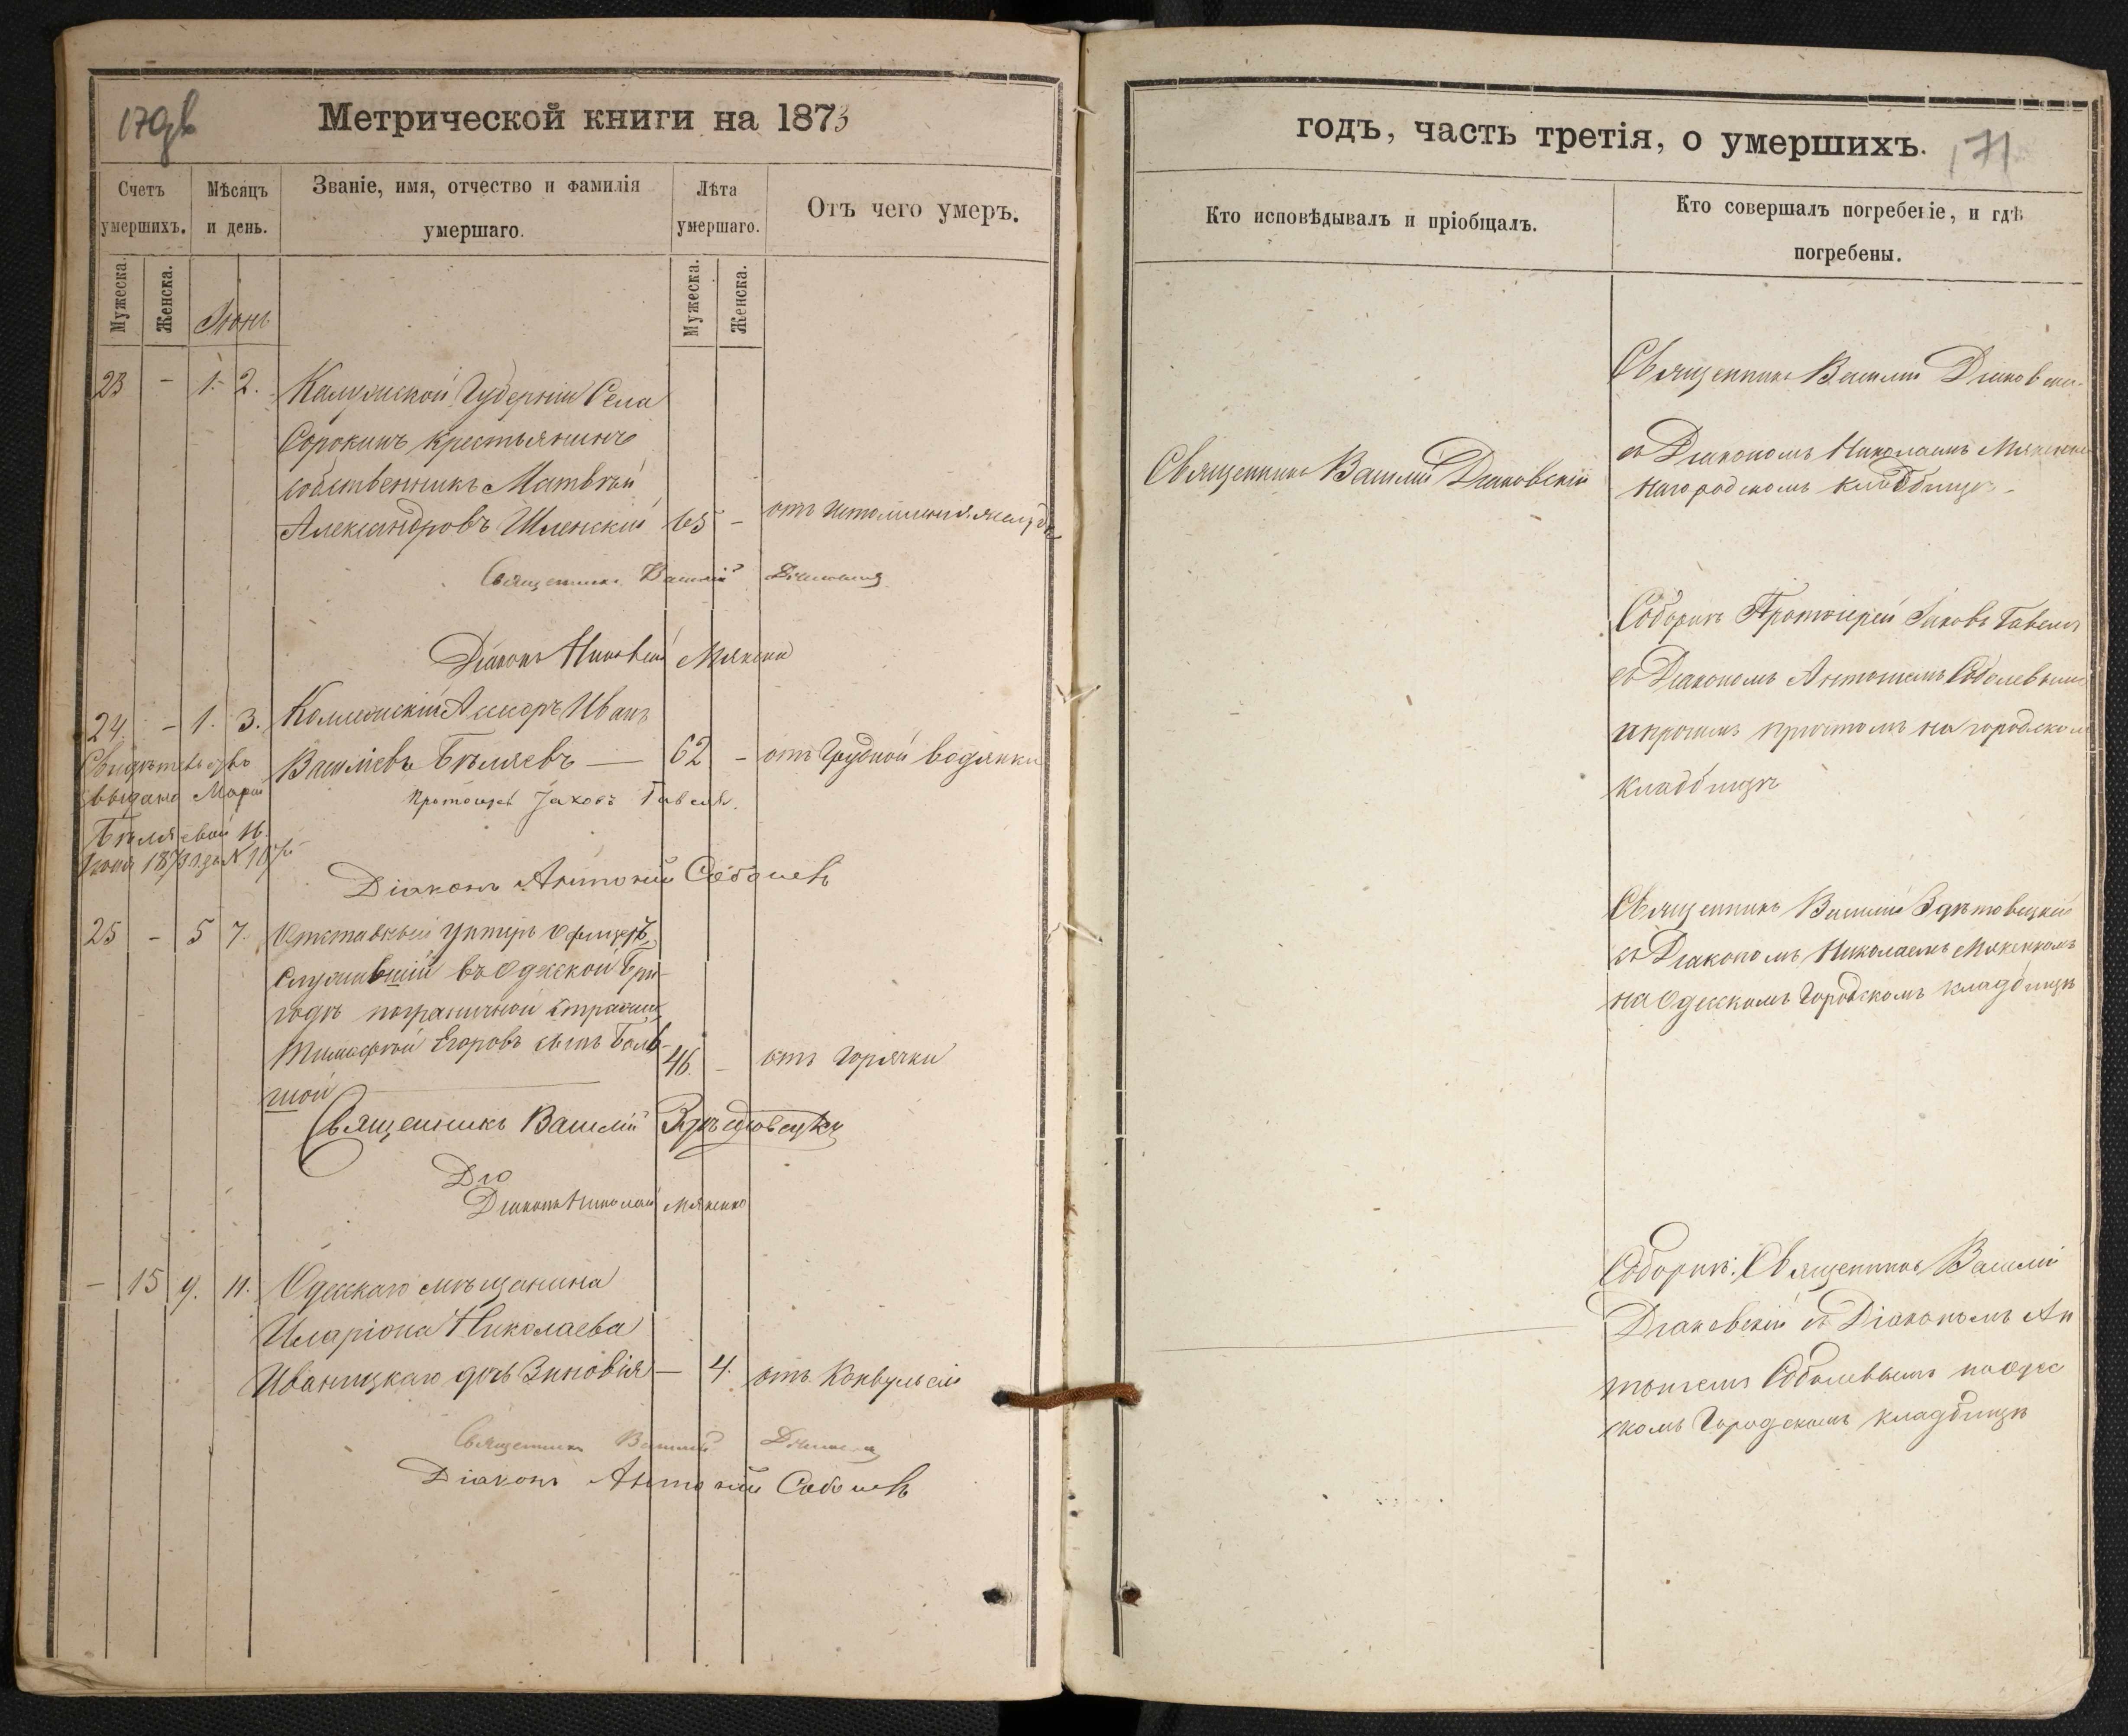 Метрической книги на 1873
Счетъ умершихъ.
Мѣсяцъ и день.
Званіе, имя, отчество и фамилія умершаго.
Лѣта умершаго.
Отъ чего умеръ.
Мужеска.
Женска.
Іюнь
Мужеска.
Женска.
23 - 1. 2. Калужской Губерніи Села
Сорокинъ крестьянинъ
собственникъ Матвѣй
Александровъ Шленскій 65 - отъ истощенія желудка
Священникъ Василій
Діаконъ Николай Мякенко
24. - 1. 3. Коллежскій Ассесоръ Иванъ
Васильевъ Бѣляевъ — 62 - отъ Грудной водянки
Свидѣтельство
выдано Маріи
Бѣляевой
Протоіерей Іаковъ Гавель.
Діаконъ Антоній Соболевъ
25 - 5 7. Отставный Унтеръ Офицеръ,
служившій въ Одесской Бри-
гадѣ пограничной стражи
Тимофей Егоровъ сынъ Боль-
шой 46. - отъ Горячки
Священникъ Василій Здѣтовецкій
Діо
Діаконъ Николай Мякенко
- 15 9. 11. Одесскаго мѣщанина
Иларіона Николаева
Иваницкаго дочь Зиновія - 4. отъ Конвульсій
Священникъ Василій
Діаконъ Антоній Соболевъ
годъ, часть третія, о умершихъ.
171
Кто исповѣдывалъ и пріобщалъ.
Кто совершалъ погребеніе, и гдѣ погребены.
Священникъ Василій Діаковскій
Священникъ Василій Діаковскій
съ Діакономъ Николаемъ Мякенко
на городскомъ кладбищѣ.
Соборнѣ Протоіерей Іаковъ Гавель
съ Діакономъ Антоніемъ Соболевымъ
и прочимъ причтомъ на городскомъ
кладбищѣ
Священникъ Василій Здѣтовецкій
съ Діакономъ Николаемъ Мякенкомъ
на Одесскомъ Городскомъ кладбищѣ
Соборнѣ: Священникъ Василій
Діаковскій съ Діакономъ Ан
тоніемъ Соболевымъ на Одес
скомъ Городскомъ кладбищѣ